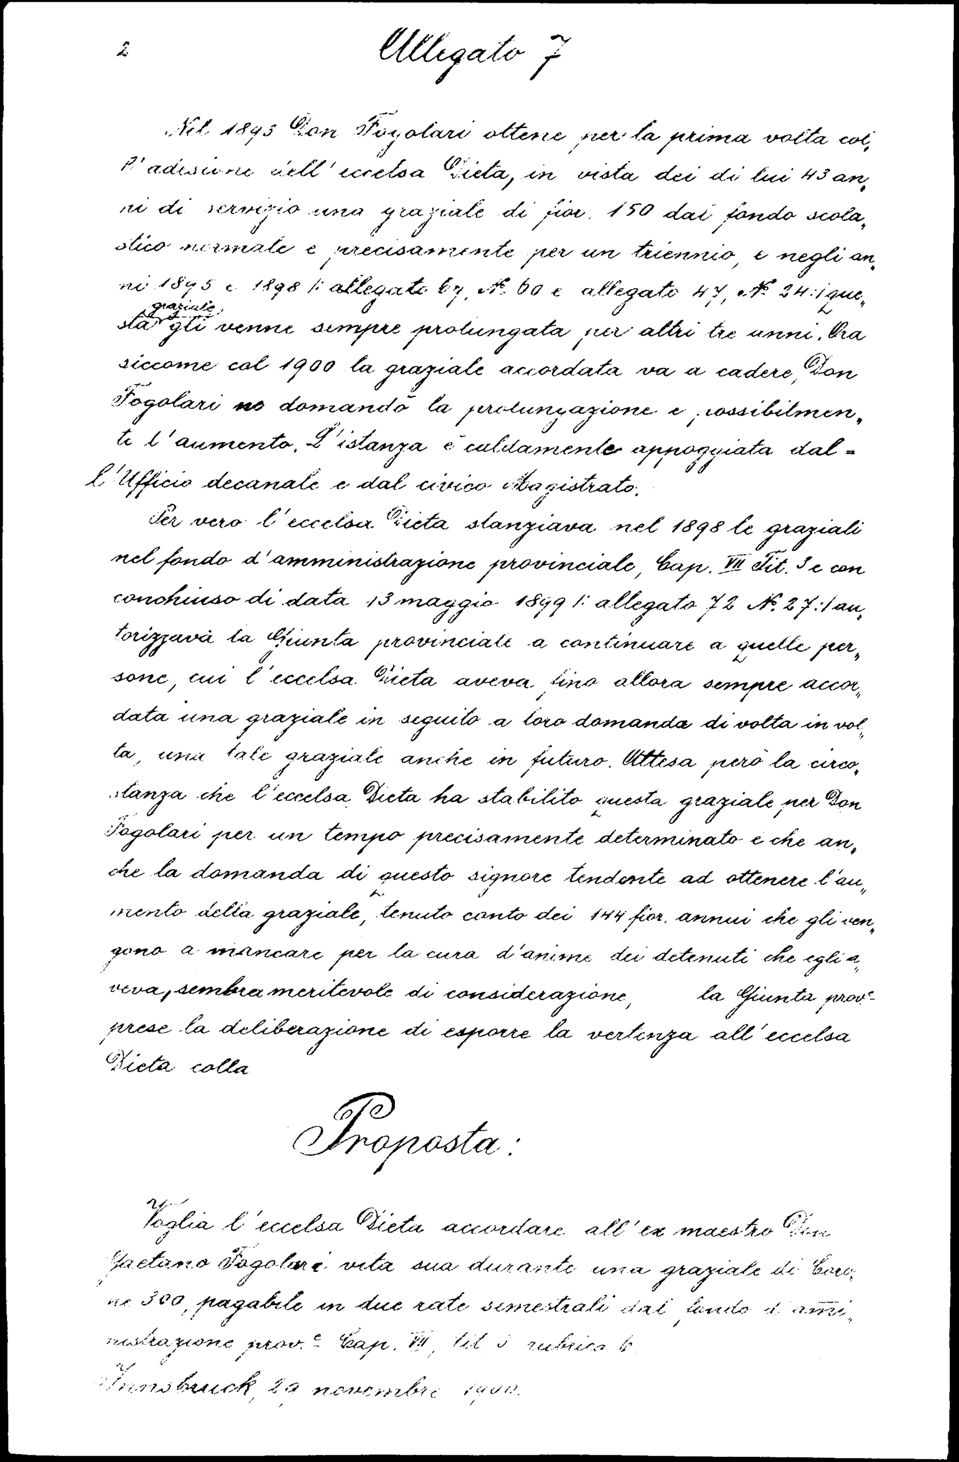 2
Allegato 7
Nel 1893 Don Fogolari ottene per la prima volta col„
l'adesione dell'eccelsa Dieta, in vista dei di lui 43 an„
ni di servizio una graziale di fior. 150 dal fondo scola„
stico normale e precisamente per un triennio, e negli an„
ni 1895 e 1898 /: allegato 67, N.° 60 e allegato 47, N.° 24 :/ que„
graziale
sta gli venne sempre prolungata per altri tre anni. Ora
siccome col 1900 la graziale accordata va a cadere, Don
Fogolari ne domandò la prolungazione e possibilmen„
te l'aumento. L'istanza è caldamente appoggiata dal =
l'Ufficio decanale e dal civico Magistrato.
Per vero l'eccelsa Dieta stanziava nel 1898 le graziali
nel fondo d'amministrazione provinciale, Cap. VII Tit. 3 e con
conchiuso di data 13 maggio 1899 /: allegato 72 N.° 27 :/ au„
torizzava la Giunta provinciale a continuare a quelle per„
sone, cui l'eccelsa Dieta aveva fino allora sempre accor„
data una graziale in seguito a loro domanda di volta in vol„
ta, una tale graziale anche in futuro. Attesa però la circo„
stanza che l'eccelsa Dieta ha stabilito questa graziale per Don
Fogolari per un tempo precisamente determinato e che an„
che la domanda di questo signore tendente ad ottenere l'au„
mento della graziale, tenuto conto dei 144 fior. annui che gli ven„
gono a mancare per la cura d'anime dei detenuti che egli a„
veva, sembra meritevole di considerazione, la Giunta prov.e
prese la deliberazione di esporre la vertenza all'eccelsa
Dieta colla
Proposta:
Voglia l'eccelsa Dieta accordare all'ex maestro Don
Gaetano Fogolari vita sua durante una graziale di Coro„
ne 300, pagabile in due rate semestrali dal fondo d'ami„
nistrazione prov.e Cap. VII, tit 3 rubrica 6.
Innsbruck, 29 novembre 1900.